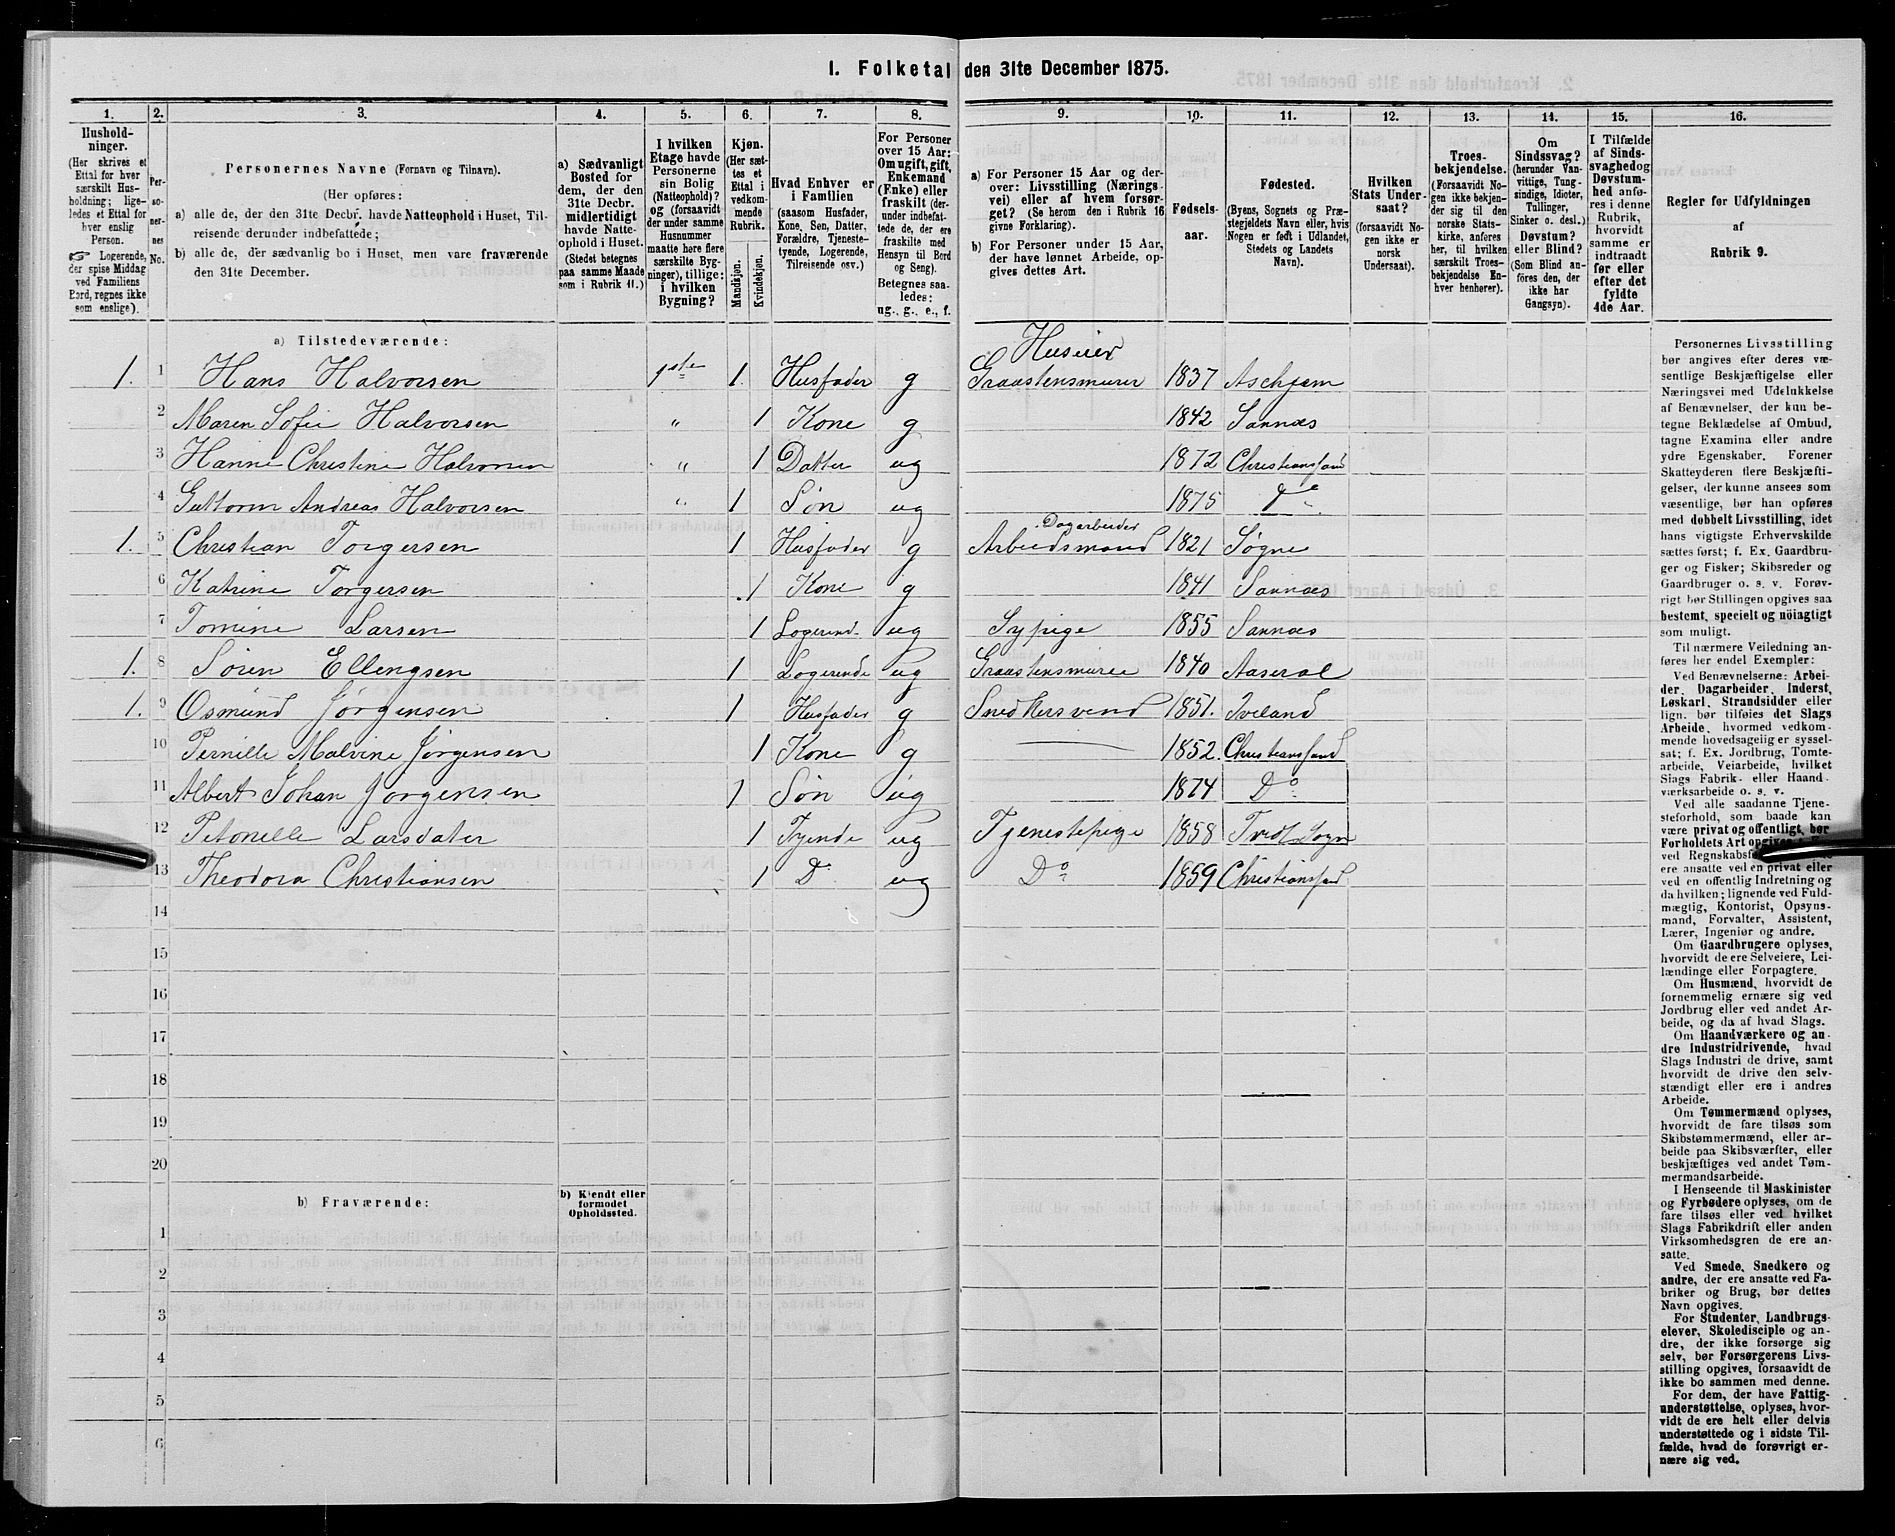 1. Folketal den 31te December 1875.
1. 2. 3. 4. 5. 6. 7. 8. 9. 10. 11. 12. 13. 14. 15. 16.
Hushold-
ninger.
(Her skrives et
Ettal for hver
særskilt Hus-
holdning; lige-
ledes et Ettal for
hver enslig
Person.
☞ Logerende,
der spise Middag
ved Familiens
Bord, regnes ikke
som enslige).
Per-
so-
ner-
nes
No.
Personernes Navne (Fornavn og Tilnavn).
(Her opføres:
a) alle de, der den 31te Decbr. havde Natteophold i Huset, Til-
reisende derunder indbefattede;
b) alle de, der sædvanlig bo i Huset, men vare fraværende
den 31te December.
a) Sædvanligt
Bosted for
dem, der den
31te Decbr.
midlertidigt
havde Natte-
ophold i Huset.
(Stedet betegnes
paa samme Maade
som i Rubrik 11.)
I hvilken
Etage havde
Personerne
sin Bolig
(Natteophold)?
og (forsaavidt
der under samme
Husnummer
maatte høre flere
særskilte Byg-
ninger), tillige:
i hvilken
Bygning?
Kjøn.
(Her sæt-
tes et
Ettal i
vedkom-
mende
Rubrik.
Mandkjøn.
Kvindekjøn.
Hvad Enhver er
i Familien
(saasom Husfader,
Kone, Søn, Datter,
Forældre, Tjeneste-
tyende, Logerende,
Tilreisende osv.)
For Personer
over 15 Aar:
Om ugift, gift,
Enkemand
(Enke) eller
fraskilt (der-
under indbefat-
tede de, der ere
fraskilte med
Hensyn til Bord
og Seng).
Betegnes saa-
ledes:
ug., g., e., f.
a) For Personer 15 Aar og der-
over: Livsstilling (Nærings-
vei) eller af hvem forsør-
get? (Se herom den i Rubrik 16
givne Forklaring).
b) For Personer under 15 Aar,
der have lønnet Arbeide, op-
gives dettes Art.
Fødsels-
aar.
Fødested.
(Byens, Sognets og Præ-
stegjeldets Navn eller, hvis
Nogen er født i Udlandet,
Stedets og Landets
Navn).
Hvilken
Stats Under-
saat?
(forsaavidt No-
gen ikke er
norsk
Undersaat).
Troes-
bekjendelse.
(Forsaavidt No-
gen ikke bekjen-
der sig til den
norske Stats-
kirke, anføres
her, til hvilken
særskilt Troes-
bekjendelse En-
hver henhører).
Om
Sindssvag?
(herunder Van-
vittige, Tung-
sindige, Idioter,
Tullinger,
Sinker o. desl.)
Døvstum?
eller Blind?
(Som Blind an-
føres den, der
ikke har
Gangsyn).
I Tilfælde
af Sinds-
svaghed og
Døvstum-
hed anfø-
res i denne
Rubrik,
hvorvidt
samme er
indtraadt
før eller
efter det
fyldte
4de Aar.
Regler for Udfyldningen
af
Rubrik 9.
a) Tilstedeværende:
Huseier
1. 1 Hans Halvorsen 1ste 1. Husfader g Graastensmurer 1837 Aschjem
2 Maren Sofie Halvorsen " 1 Kone g 1842 Sannæs
3 Hanne Christine Halvorsen " 1 Datter ug 1872 Christianssand
4 Guttorm Andreas Halvorsen " 1 Søn ug 1875 Do
Dagarbeider
1. 5 Christian Torgersen 1 Husfader g Arbeidsmand 1821 Søgne
6 Katrine Torgersen 1 Kone g 1841 Sannæs
7 Tomine Larsen 1 Logerend. ug Sypige 1855 Sannæs
1. 8 Søren Ellengsen 1 Logerende ug Graastensmurer 1840 Aaseral
1. 9 Osmund Jørgensen 1 Husfader g Snedkersvend 1851. Iveland
10 Pernille Malvine Jørgensen 1 Kone g 1852. Christianssand
11 Albert Johan Jørgensen 1 Søn ug 1874 Do
12 Petonelle Larsdater 1 Tyende ug Tjenestepige 1858 Tvidt Sogn
13 Theodora Christiansen 1 Do ug Do 1859 Christianssand
14
15
16
17
18
19
20
b) Fraværende:
b) Kjendt eller
formodet
Opholdssted.
1
2
3
4
5
6
Personernes Livsstilling
bør angives efter deres væ-
sentlige Beskjæftigelse eller
Næringsvei med Udelukkelse
af Benævnelser, der kun be-
tegne Beklædelse af Ombud,
tagne Examina eller andre
ydre Egenskaber. Forener
Skatteyderen flere Beskjæfti-
gelser, der kunne ansees som
væsentlige, bør han opføres
med dobbelt Livsstilling, idet
hans vigtigste Erhvervskilde
sættes først; f. Ex. Gaardbru-
ger og Fisker; Skibsreder og
Gaardbruger o. s. v. Forøv-
rigt bør Stillingen opgives saa
bestemt, specielt og nöiagtigt
som muligt.
Til nærmere Veiledning an-
føres her endel Exempler:
Ved Benævnelserne: Arbei-
der, Dagarbeider, Inderst,
Løskarl, Strandsidder eller
lign. bør tilføies det Slags
Arbeide, hvormed vedkom-
mende hovedsagelig er syssel-
sat; f. Ex. Jordbrug, Tomte-
arbeide, Veiarbeide, hvilket
Slags Fabrik- eller Haand-
værksarbeide o. s. v.
Ved alle saadanne Tjene-
steforhold, som baade kan
være privat og offentligt, bør
Forholdets Art opgives
ved Regnskabsf
ere ansatte ved en privat eller
ved en offentlig Indretning og
da hvilken; lignende ved Fuld-
mægtig, Kontorist, Opsyns-
mand, Forvalter, Assistent,
Lærer, Ingeniør og andre.
Om Gaardbrugere oplyses,
hvorvidt de ere Selveiere, Lei-
lændinge eller Forpagtere.
Om Husmænd, hvorvidt de
fornemmelig ernære sig ved
Jordbrug eller ved andet Ar-
beide, og da af hvad Slags.
Om Haandværkere og an-
dre Industridrivende, hvad
Slags Industri de drive, samt
hvorvidt de drive den selv-
stændigt eller ere i andres
Arbeide.
Om Tømmermænd oplyses,
hvorvidt de fare tilsøs som
Skibstømmermænd, eller ar-
beide paa Skibsværfter, eller
beskjæftiges ved andet Tøm-
mermandsarbeide.
I Henseende til Maskinister
og Fyrbødere oplyses, om de
fare tilsøs eller ved hvilket
Slags Fabrikdrift eller anden
Virksomhedsgren de ere an-
satte.
Ved Smede, Snedkere og
andre, der ere ansatte ved Fa-
briker og Brug, bør dettes
Navn opgives.
For Studenter, Landbrugs-
elever, Skoledisciple og an-
dre, der ikke forsørge sig
selv, bør Forsørgerens Livs-
stilling opgives, forsaavidt de
ikke bo sammen med denne.
For dem, der have Fattig-
understøttelse, oplyses, hvor-
vidt de ere helt eller delvis
understøttede og i sidste Til-
fælde, hvad de forøvrigt er-
nære sig ved.